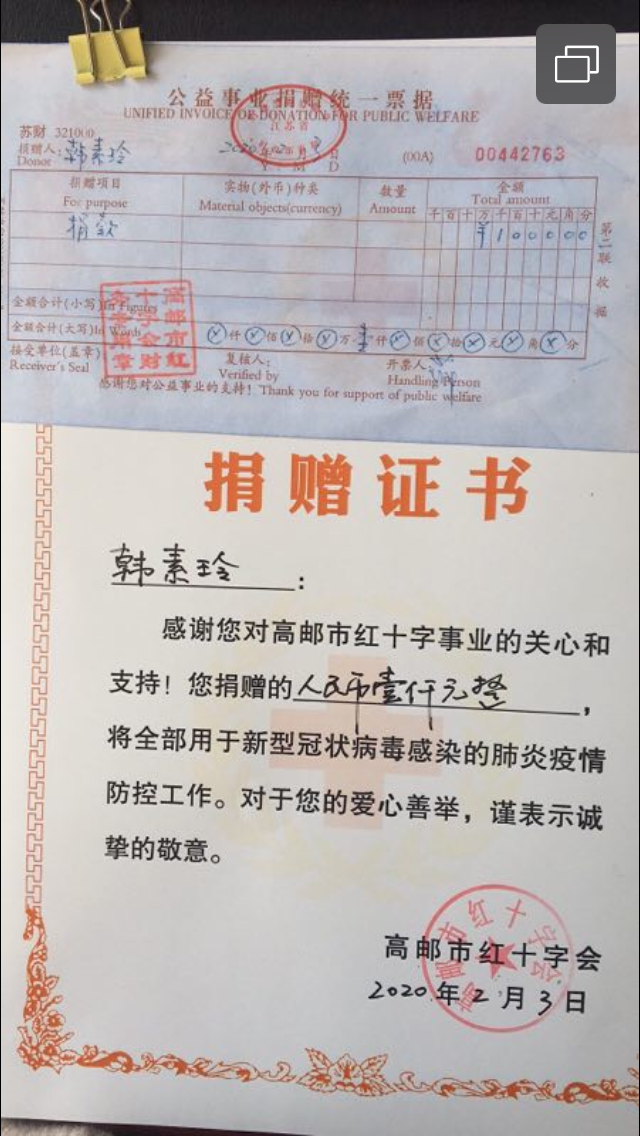 公益事业捐赠统一票据
UNIFIED INVOICE OF DONATION FOR PUBLIC WELFARE
苏财 321000
捐赠人: 韩素玲
Donor
江苏省
Y M D
(00A) 00442763
捐赠项目 实物(外币)种类 数量 金额
For purpose Material objects(currency) Amount Total amount
千百十万千百十元角分
捐款 ¥100000
第二联 收据
金额合计(小写)In Figures
金额合计(大写)In Words ⓧ仟ⓧ佰ⓧ拾ⓧ万壹仟ⓧ佰ⓧ拾ⓧ元ⓧ角ⓧ分
接受单位(盖章) 复核人: 开票人:
Receiver's Seal Verified by Handling Person
感谢您对公益事业的支持! Thank you for support of public welfare
高邮市红十字会财务专用章
捐赠证书
韩素玲:
感谢您对高邮市红十字事业的关心和
支持! 您捐赠的人民币壹仟元整,
将全部用于新型冠状病毒感染的肺炎疫情
防控工作。对于您的爱心善举,谨表示诚
挚的敬意。
高邮市红十字会
高邮市红十字会
2020年2月3日